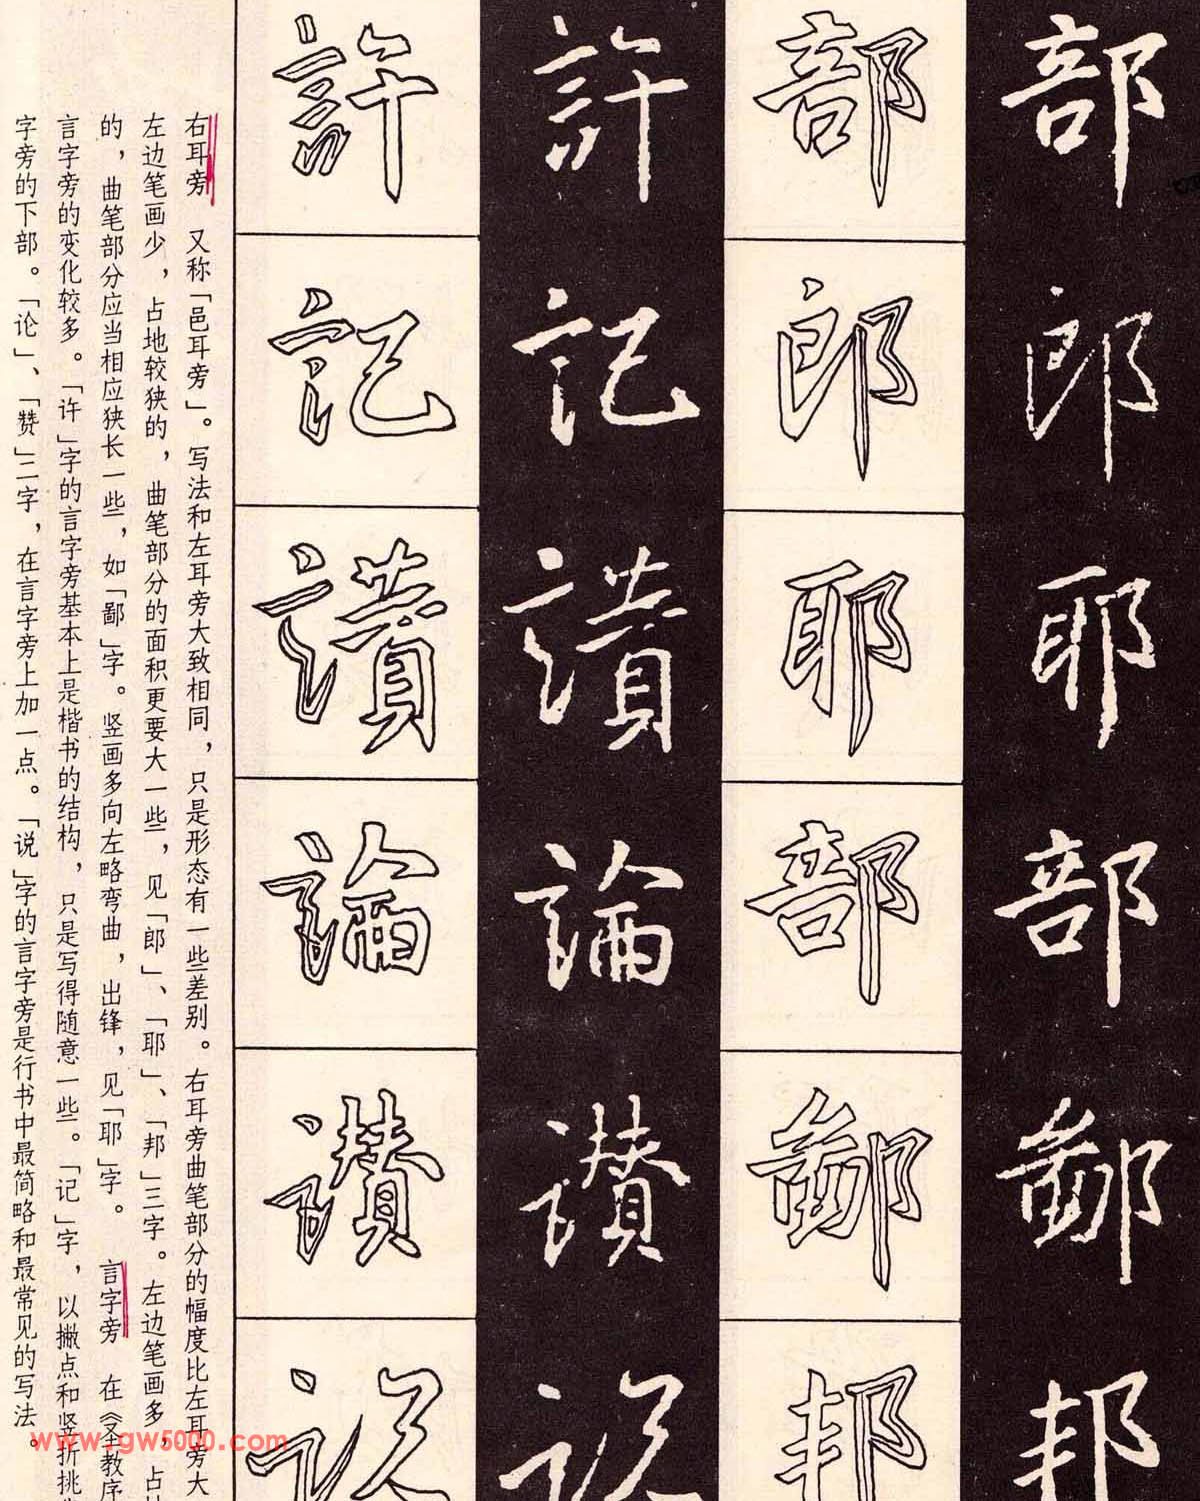 部郎耶部鄙邦
部郎耶部鄙邦
許記讀論讃説
許記讀論讃説
右耳旁 又称「邑耳旁」。写法和左耳旁大致相同，只是形态有一些差别。右耳旁曲笔部分的幅度比左耳旁大
左边笔画少，占地较狭的，曲笔部分的面积更要大一些，见「郎」、「耶」、「邦」三字。左边笔画多，占
的，曲笔部分应当相应狭长一些，如「鄙」字。竖画多向左略弯曲，出锋，见「耶」字。 言字旁 在《圣教序
言字旁的变化较多。「许」字的言字旁基本上是楷书的结构，只是写得随意一些。「记」字，以撇点和竖折挑
字旁的下部。「论」、「赞」二字，在言字旁上加一点。「说」字的言字旁是行书中最简略和最常见的写法。
www.gw5000.com